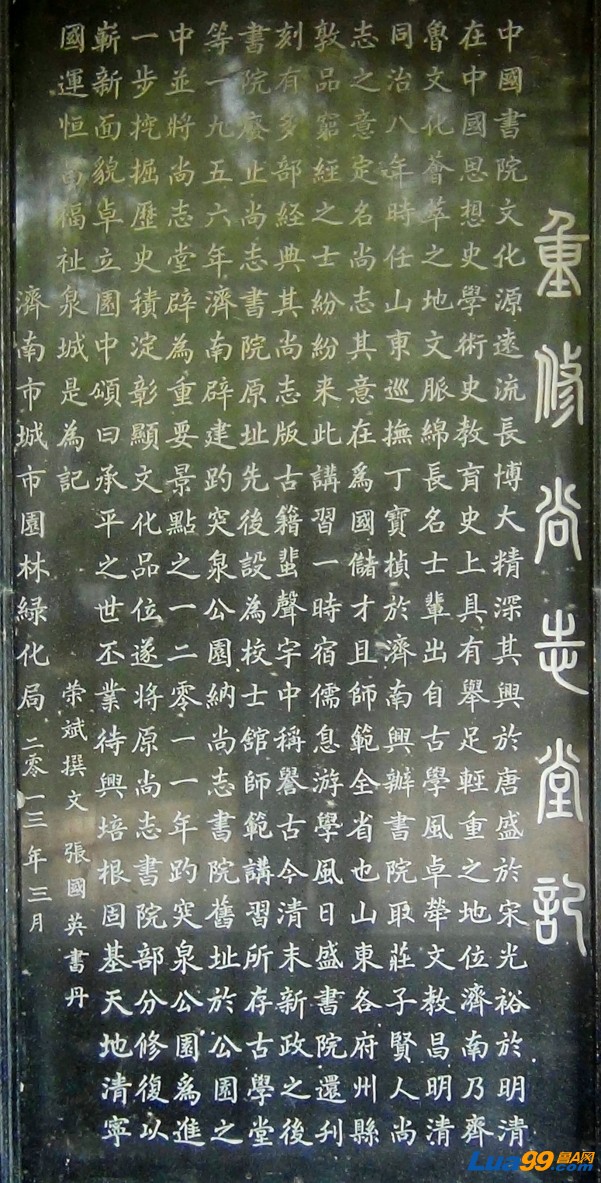 重修尚志堂記
中國書院文化源遠流長博大精深其興於唐盛於宋光裕於明清
在中國思想史學術史教育史上具有舉足輕重之地位濟南乃齊
魯文化薈萃之地文脈綿長名士輩出自古學風卓犖文教昌明清
同治八年時任山東巡撫丁寶楨於濟南興辦書院取莊子賢人尚
志之意定名尚志其意在爲國儲才且師範全省也山東各府州縣
敦品窮經之士紛紛来此講習一時宿儒息游學風日盛書院還刊
刻有多部經典其尚志版古籍蜚聲宇中稱譽古今清末新政之後
書院廢止尚志書院原址先後設為校士館師範講習所存古學堂
等一九五六年濟南辟建趵突泉公園納尚志書院舊址於公園之
中並將尚志堂辟為重要景點之一二零一一年趵突泉公園為進
一步挖掘歷史積淀彰顯文化品位遂將原尚志書院部分修復以
嶄新面貌卓立園中頌曰承平之世丕業待興培根固基天地清寧
國運恒昌福祉泉城是為記
荣斌撰文 張國英書丹
濟南市城市園林綠化局二零一三年三月
Lua99.com
魯A网